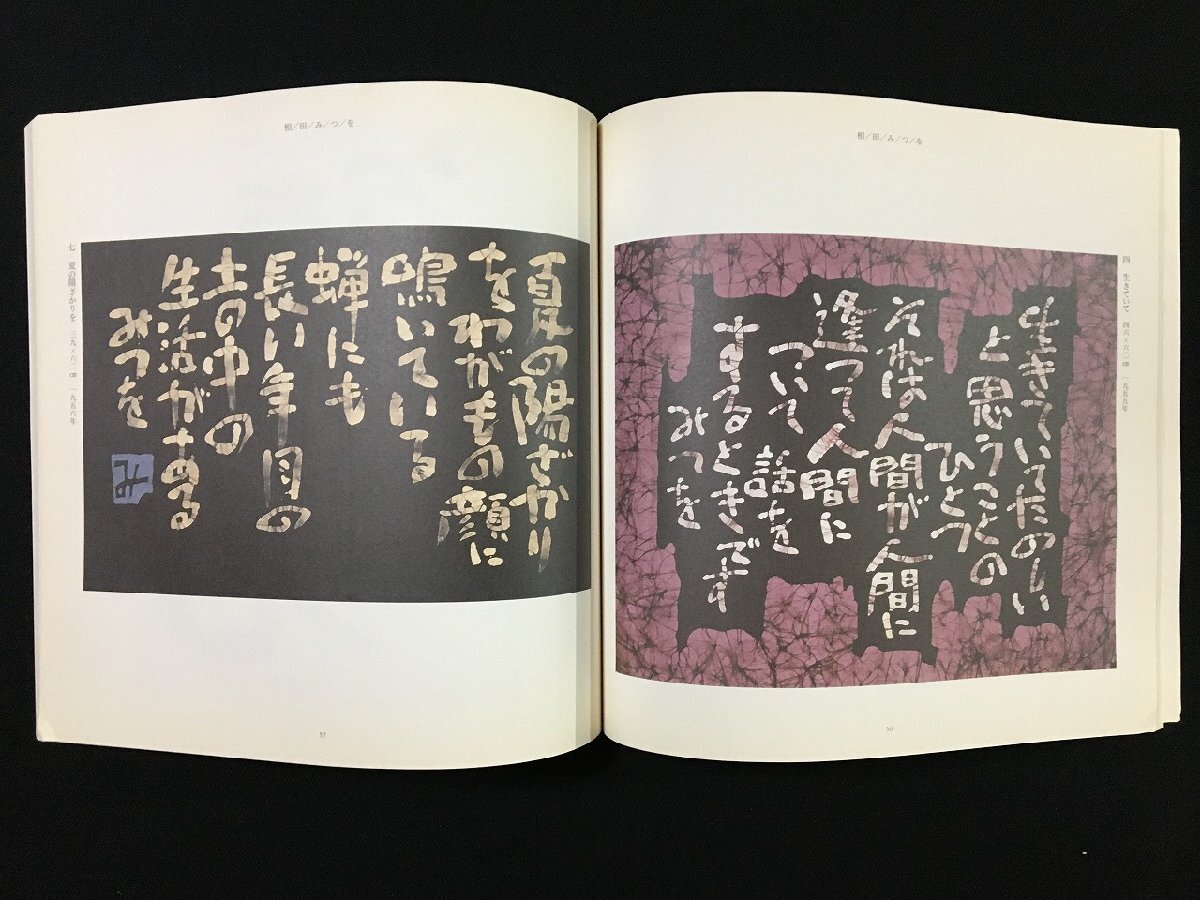 相/田/み/つ/を
四 生きていて 四六×六〇cm 一九五五年
生きていてたのしい
と思うことの
ひとつ
それは人間が人間に
逢って人間に
ついて話を
するときです
みつを
56
相/田/み/つ/を
夏の陽ざかり
をわがもの顔に
鳴いている
蝉にも
長い年月の
土の中の
生活がある
みつを
み
七 夏の陽ざかりを 三九×六一cm 一九五六年
57